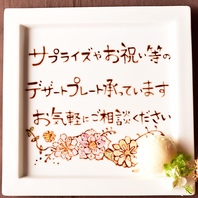 サプライズやお祝い等の
デザートプレート承っています
お気軽にご相談ください